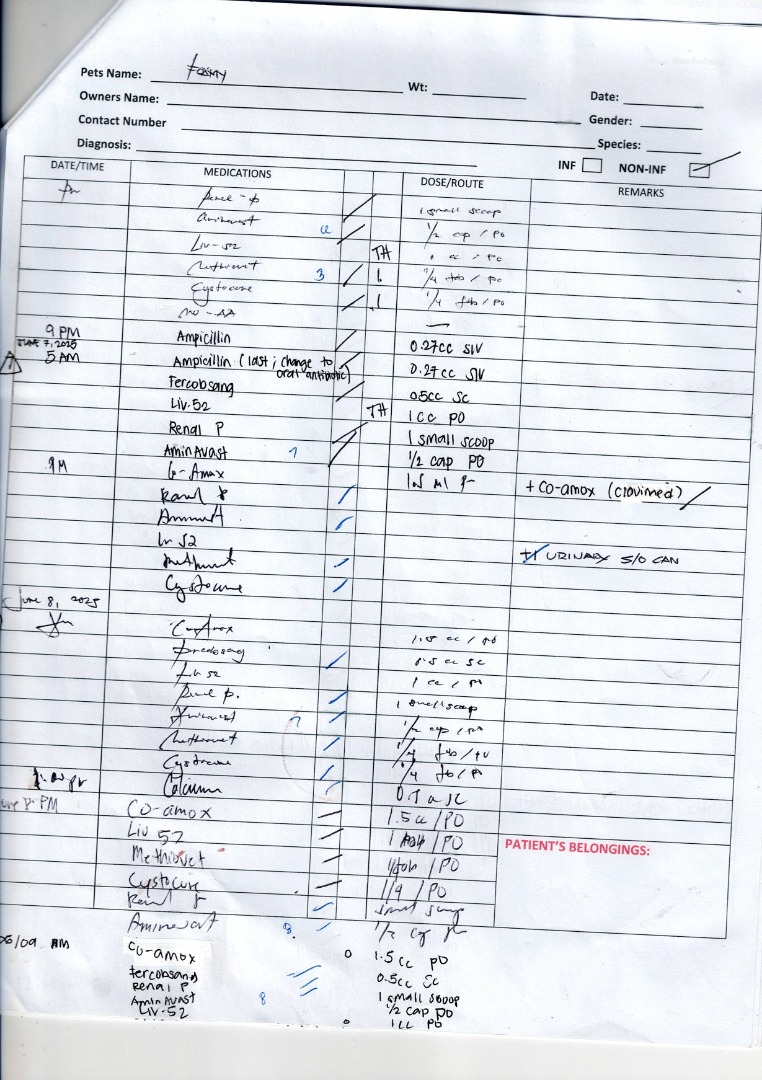 Pets Name: Foamy
Wt:
Date:
Owners Name:
Contact Number
Gender:
Diagnosis:
Species:
INF NON-INF
DATE/TIME MEDICATIONS DOSE/ROUTE REMARKS
pm Renal-P 1 small scoop
Aminavast 1/2 cap / PO
Liv-52 TH cc / PO
Methiovet 3 1. 1/4 tab / PO
Cystocure 1 1/4 tab / PO
9 PM Ampicillin 0.27cc SIV
JUNE 7, 2025
5 AM Ampicillin (last ; change to oral antibiotic) 0.27cc SIV
Fercobsang 0.5cc SC
Liv.52 TH 1cc PO
Renal P 1 small scoop
AminAvast 7 1/2 cap PO
Co-Amox + Co-amox (clavimed)
Renal P
Aminavast
Liv 52 +1 URINARY S/O CAN
Methiovet
Cystocure
June 8, 2025
Co-Amox 1.5 cc / PO
Fercobsang 0.5 cc SC
Liv 52 1 cc / PO
Renal p. 1 small scoop
Aminavast 7 1/2 cap / PO
Methiovet 1/4 tab / PO
Cystocure 1/4 tab / PO
Calcium SC
June 8 PM Co-amox 1.5 cc / PO
Liv 52 1 / PO
Methiovet tab / PO
Cystocure 1/4 / PO
PATIENT'S BELONGINGS:
Renal P small scoop
Aminavast 8. 1/2 cap PO
06/09 AM Co-amox 0 1.5cc PO
Fercobsang 0.5cc SC
Renal P 1 small scoop
AminAvast 8 1/2 cap PO
Liv-52 1cc PO